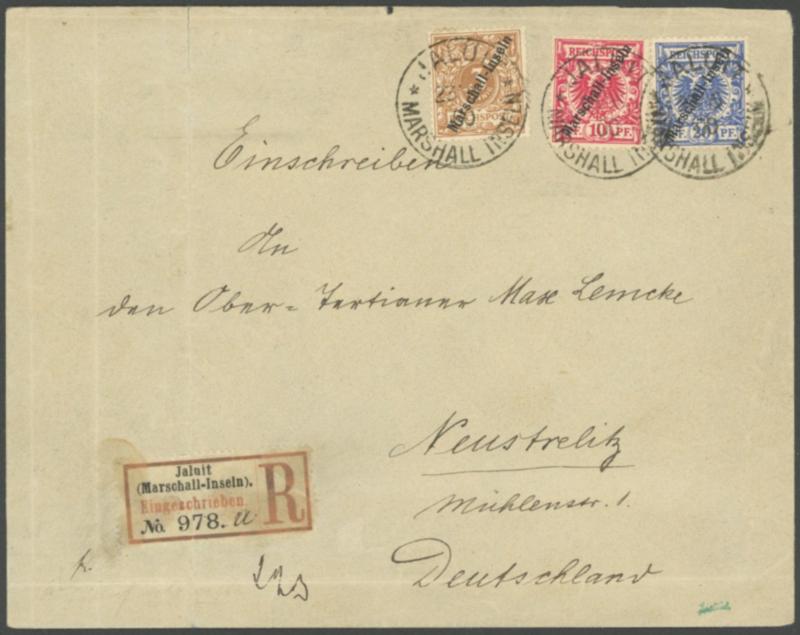 JALUIT
Marschall-Inseln
* MARSHALL INSELN *
REICHSPOST
JALUIT
Marschall-Inseln
10 PF.
* MARSHALL INSELN *
REICHSPOST
JALUIT
Marschall-Inseln
20 PF.
MARSHALL INSELN *
Einschreiben
An
den Ober-Tertianer Max Lemcke
Neustrelitz
Mühlenstr. 1.
Deutschland
Jaluit
(Marschall-Inseln).
Eingeschrieben
No. 978. a
R